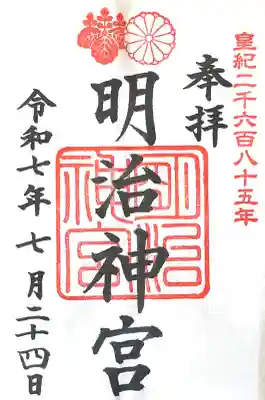 皇紀二千六百八十五年
奉拝
明治神宮
明治神宮
令和七年 七月二十四日